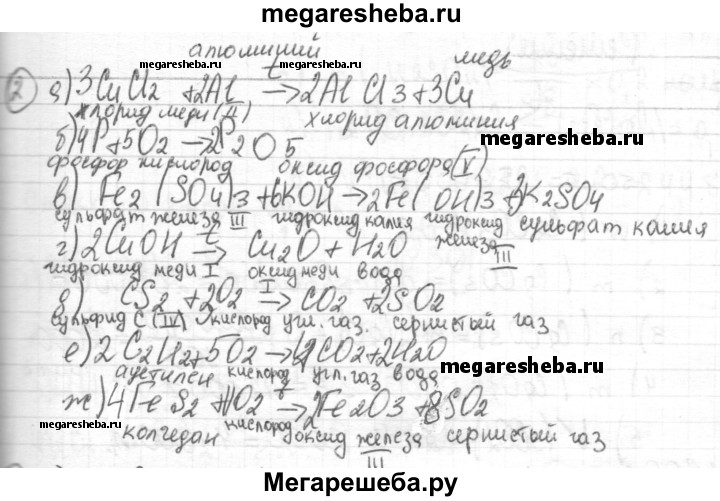 megaresheba.ru
алюминий
megaresheba.ru t megaresheba.ru медь
2 а) 3CuCl2 + 2Al → 2AlCl3 + 3Cu
хлорид меди (II) хлорид алюминия
megaresheba.ru
б) 4P + 5O2 → 2P2O5
фосфор кислород оксид фосфора (V)
в) Fe2(SO4)3 + 6KOH → 2Fe(OH)3 + 3K2SO4
сульфат железа III гидроксид калия гидроксид железа III сульфат калия
г) 2CuOH t→ Cu2O + H2O
гидроксид меди I оксид меди I вода
д) CS2 + 2O2 → CO2 + 2SO2
сульфид C (IV) кислород угл. газ. сернистый газ
е) 2C2H2 + 5O2 → 4CO2 + 2H2O
megaresheba.ru
ацетилен кислород угл. газ вода
megaresheba.ru
ж) 4FeS2 + O2 t→ 2Fe2O3 + 8SO2
megaresheba.ru
колчедан кислород оксид железа III сернистый газ
Мегарешеба.ру